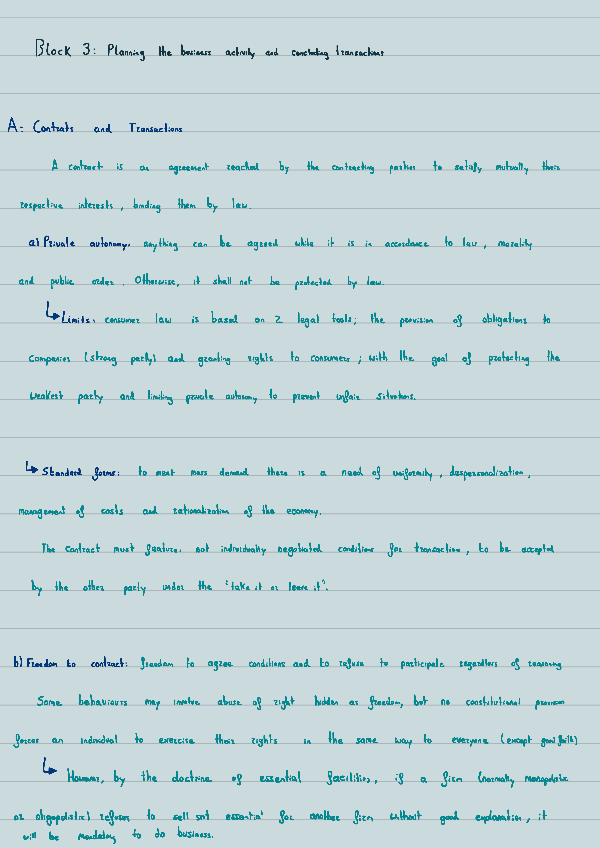 Block 3: Planning the business activity and concluding transactions
A: Contrats and Transactions
A contract is an agreement reached by the contracting parties to satisfy mutually their
respective interests, binding them by law.
a) Private autonomy: anything can be agreed while it is in accordance to law, morality
and public order. Otherwise, it shall not be protected by law.
↳ Limits: consumer law is based on 2 legal tools; the provision of obligations to
companies (strong party) and granting rights to consumers; with the goal of protecting the
weakest party and limiting private autonomy to prevent unfair situations.
↳ Standard forms: to meet mass demand there is a need of uniformity, despersonalization,
management of costs and rationalization of the economy.
The contract must feature: not individually negotiated conditions for transaction, to be accepted
by the other party under the "take it or leave it".
b) Freedom to contract: freedom to agree conditions and to refuse to participate regardless of reasoning
Some behaviours may involve abuse of right hidden as freedom, but no constitutional provision
forces an individual to exercise their rights in the same way to everyone (except good faith)
↳ However, by the doctrine of essential facilities, if a firm (normally monopolistic
or oligopolistic) refuses to sell smt essential for another firm without good explanation, it
will be mandatory to do business.